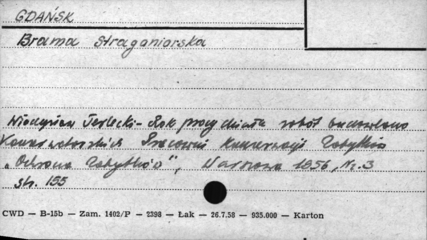 GDAŃSK
Brama Straganiarska
Władysław Terlecki - Rok pracy działu robót budowlano
Konserwatorskich Pracowni Konserwacji Zabytków
„Ochrona Zabytków", Warszawa 1956, Nr. 3
str. 155
CWD — B-15b — Zam. 1402/P — 2398 — Łak — 26.7.58 — 935.000 — Karton